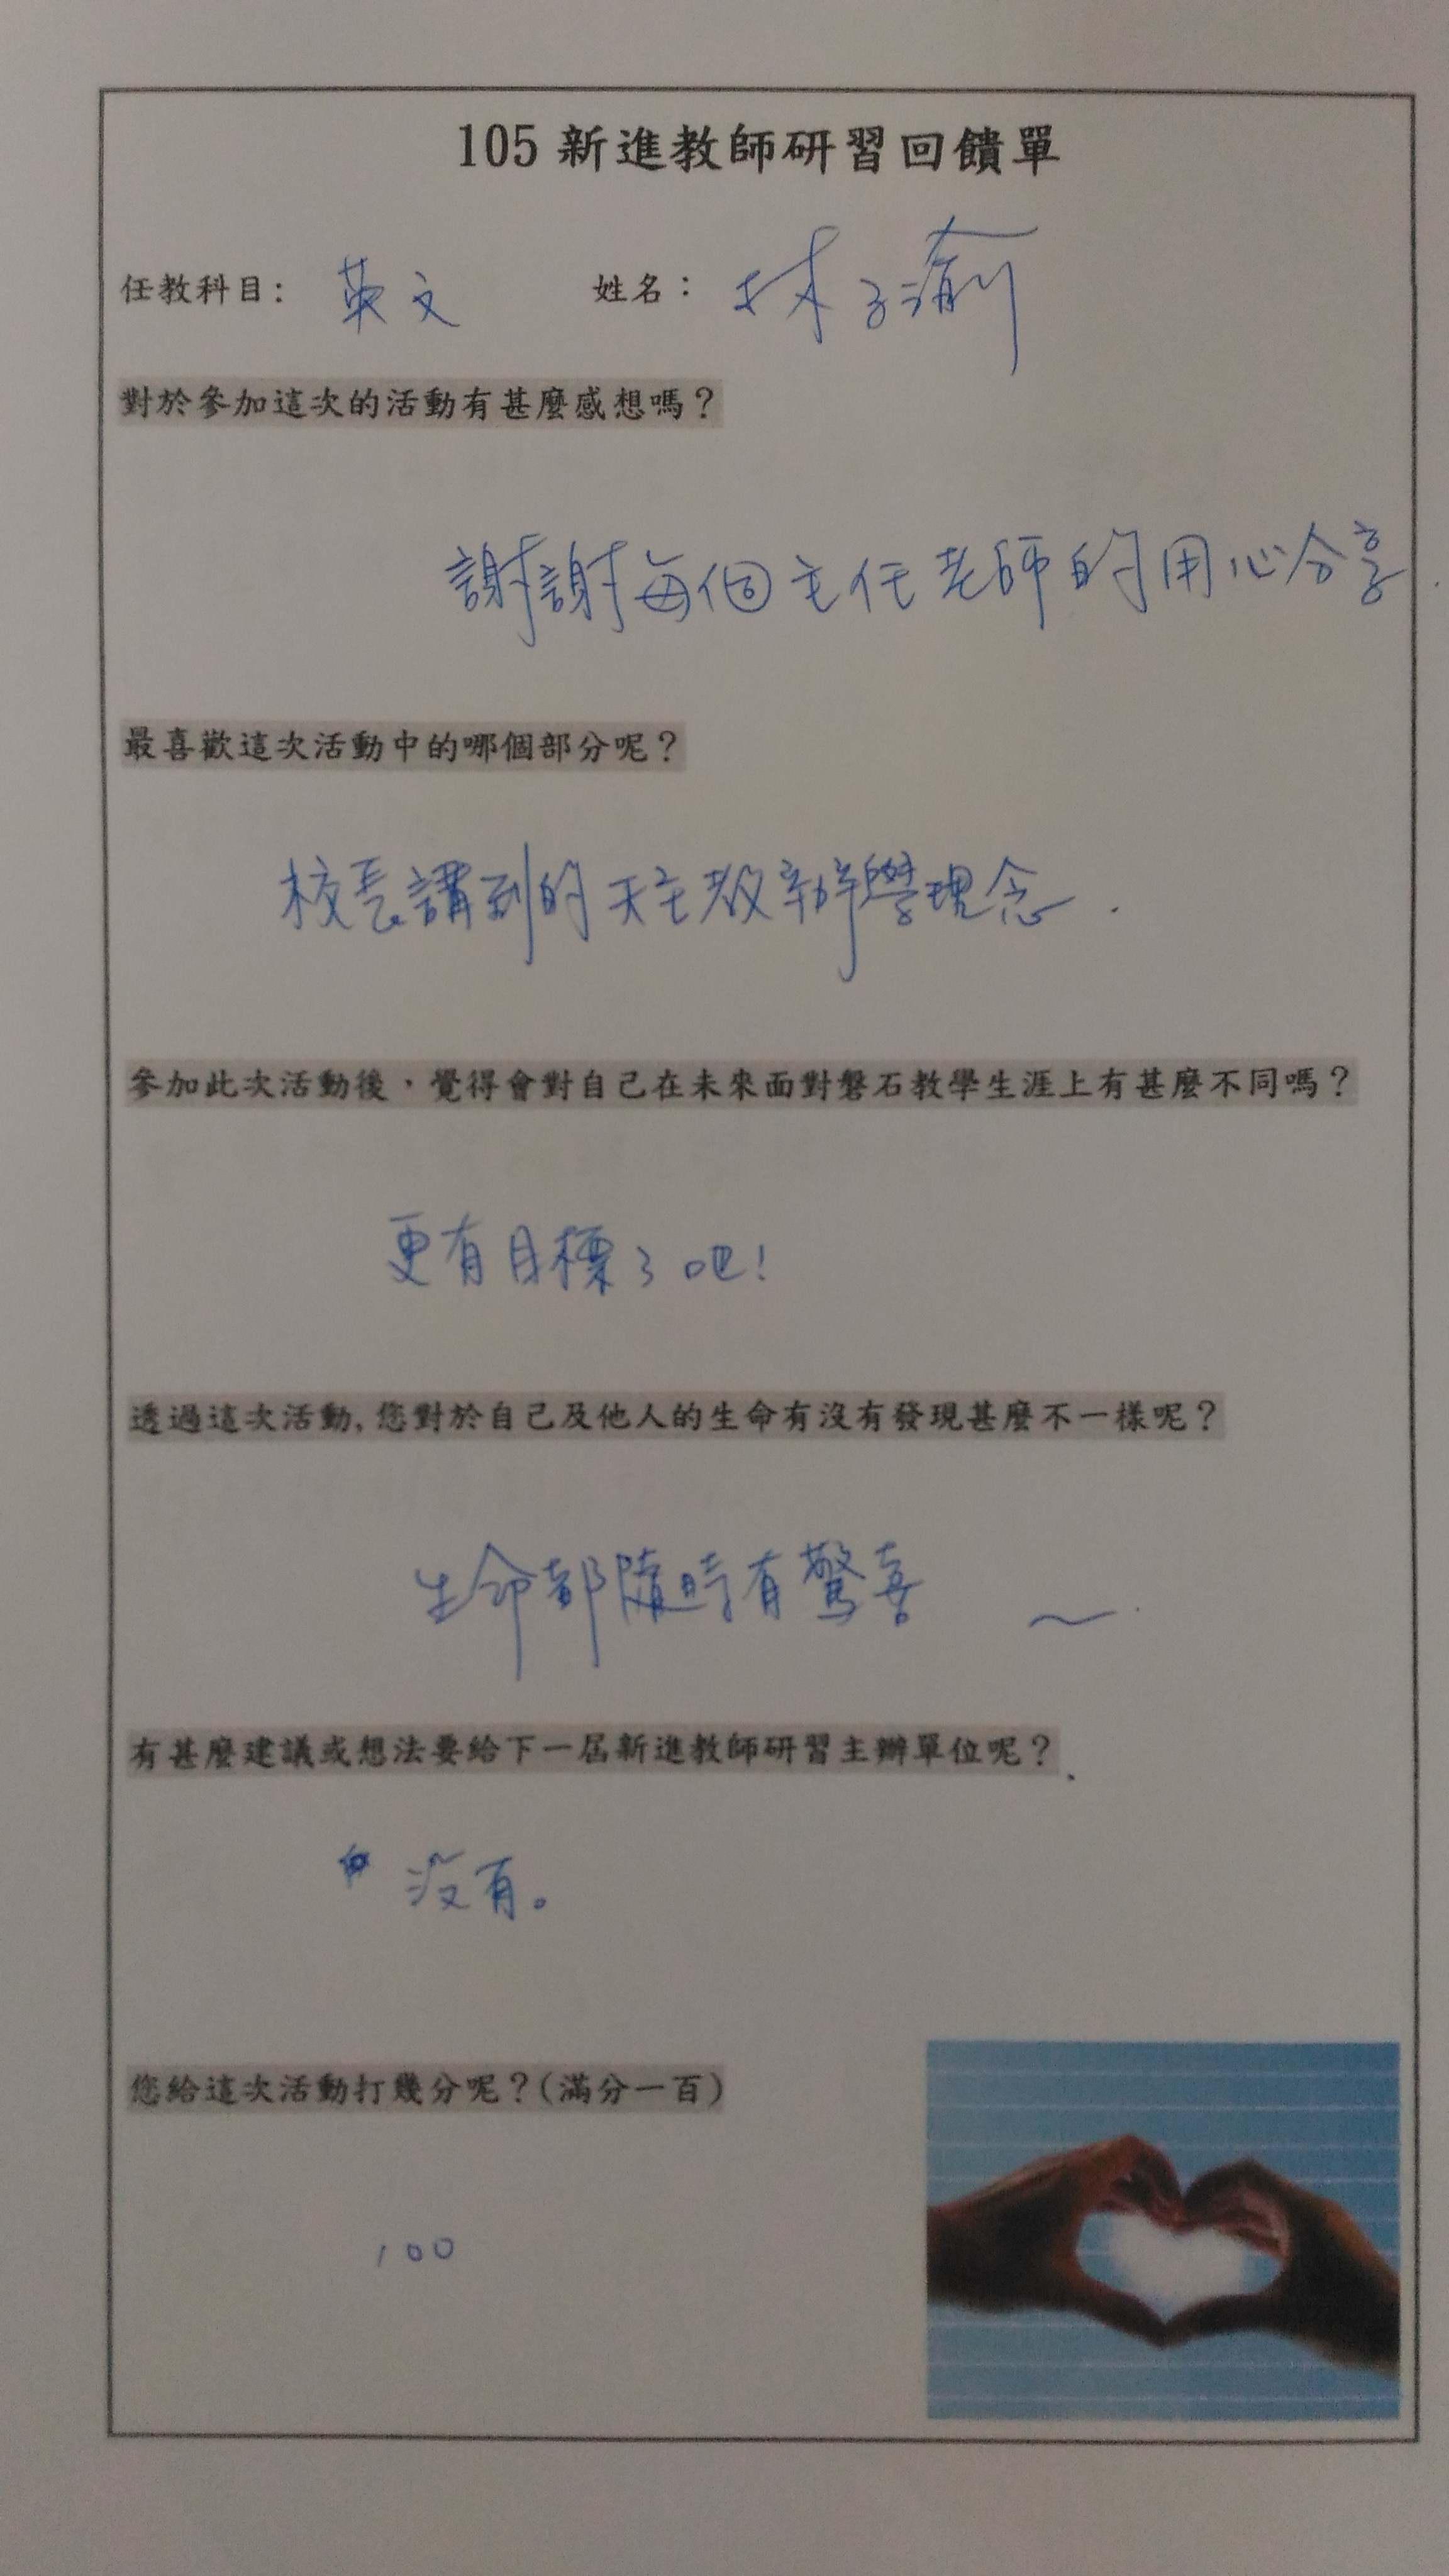 105 新進教師研習回饋單
任教科目: 英文 姓名： 林子渝
對於參加這次的活動有甚麼感想嗎？
謝謝每個主任老師的用心分享.
最喜歡這次活動中的哪個部分呢？
校長講到的天主教辦學理念.
參加此次活動後，覺得會對自己在未來面對磐石教學生涯上有甚麼不同嗎？
更有目標了吧!
透過這次活動,您對於自己及他人的生命有沒有發現甚麼不一樣呢？
生命都隨時有驚喜 ~.
有甚麼建議或想法要給下一屆新進教師研習主辦單位呢？
沒有。
您給這次活動打幾分呢？(滿分一百)
100